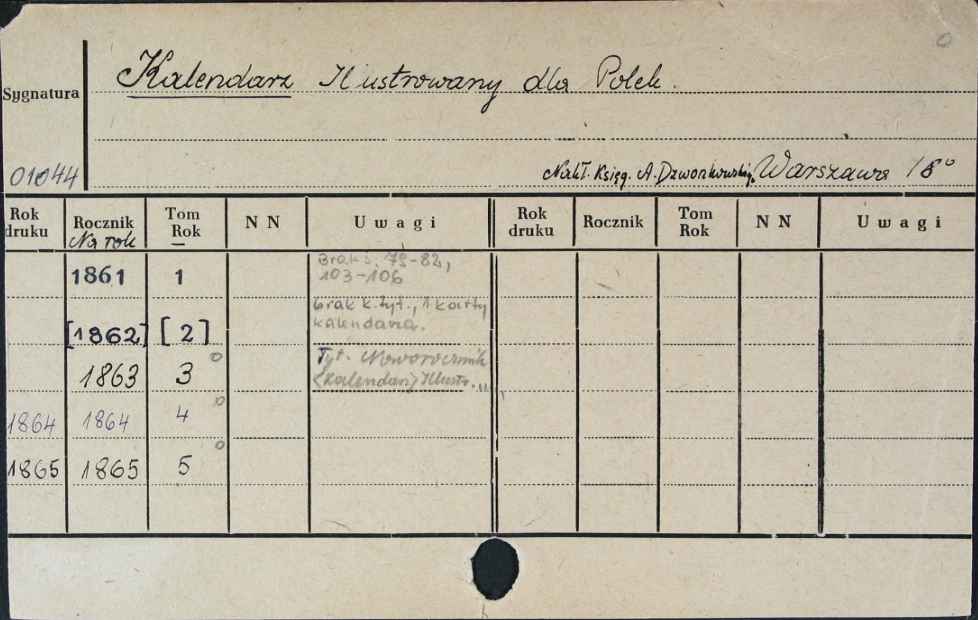 Kalendarz Ilustrowany dla Polek.
Sygnatura
01044
Nakł. Księg. A. Dzwonkowskiej, Warszawa
Rok druku Rocznik Na rok Tom Rok N N Uwagi Rok druku Rocznik Tom Rok N N Uwagi
1861 1 Brak s. 79-82,
103-106
[1862] [2] brak k. tyt., 1 karty
kalendarza.
1863 3 Tyt. Noworocznik
(Kalendarz) Illustr. ...
1864 1864 4
1865 1865 5